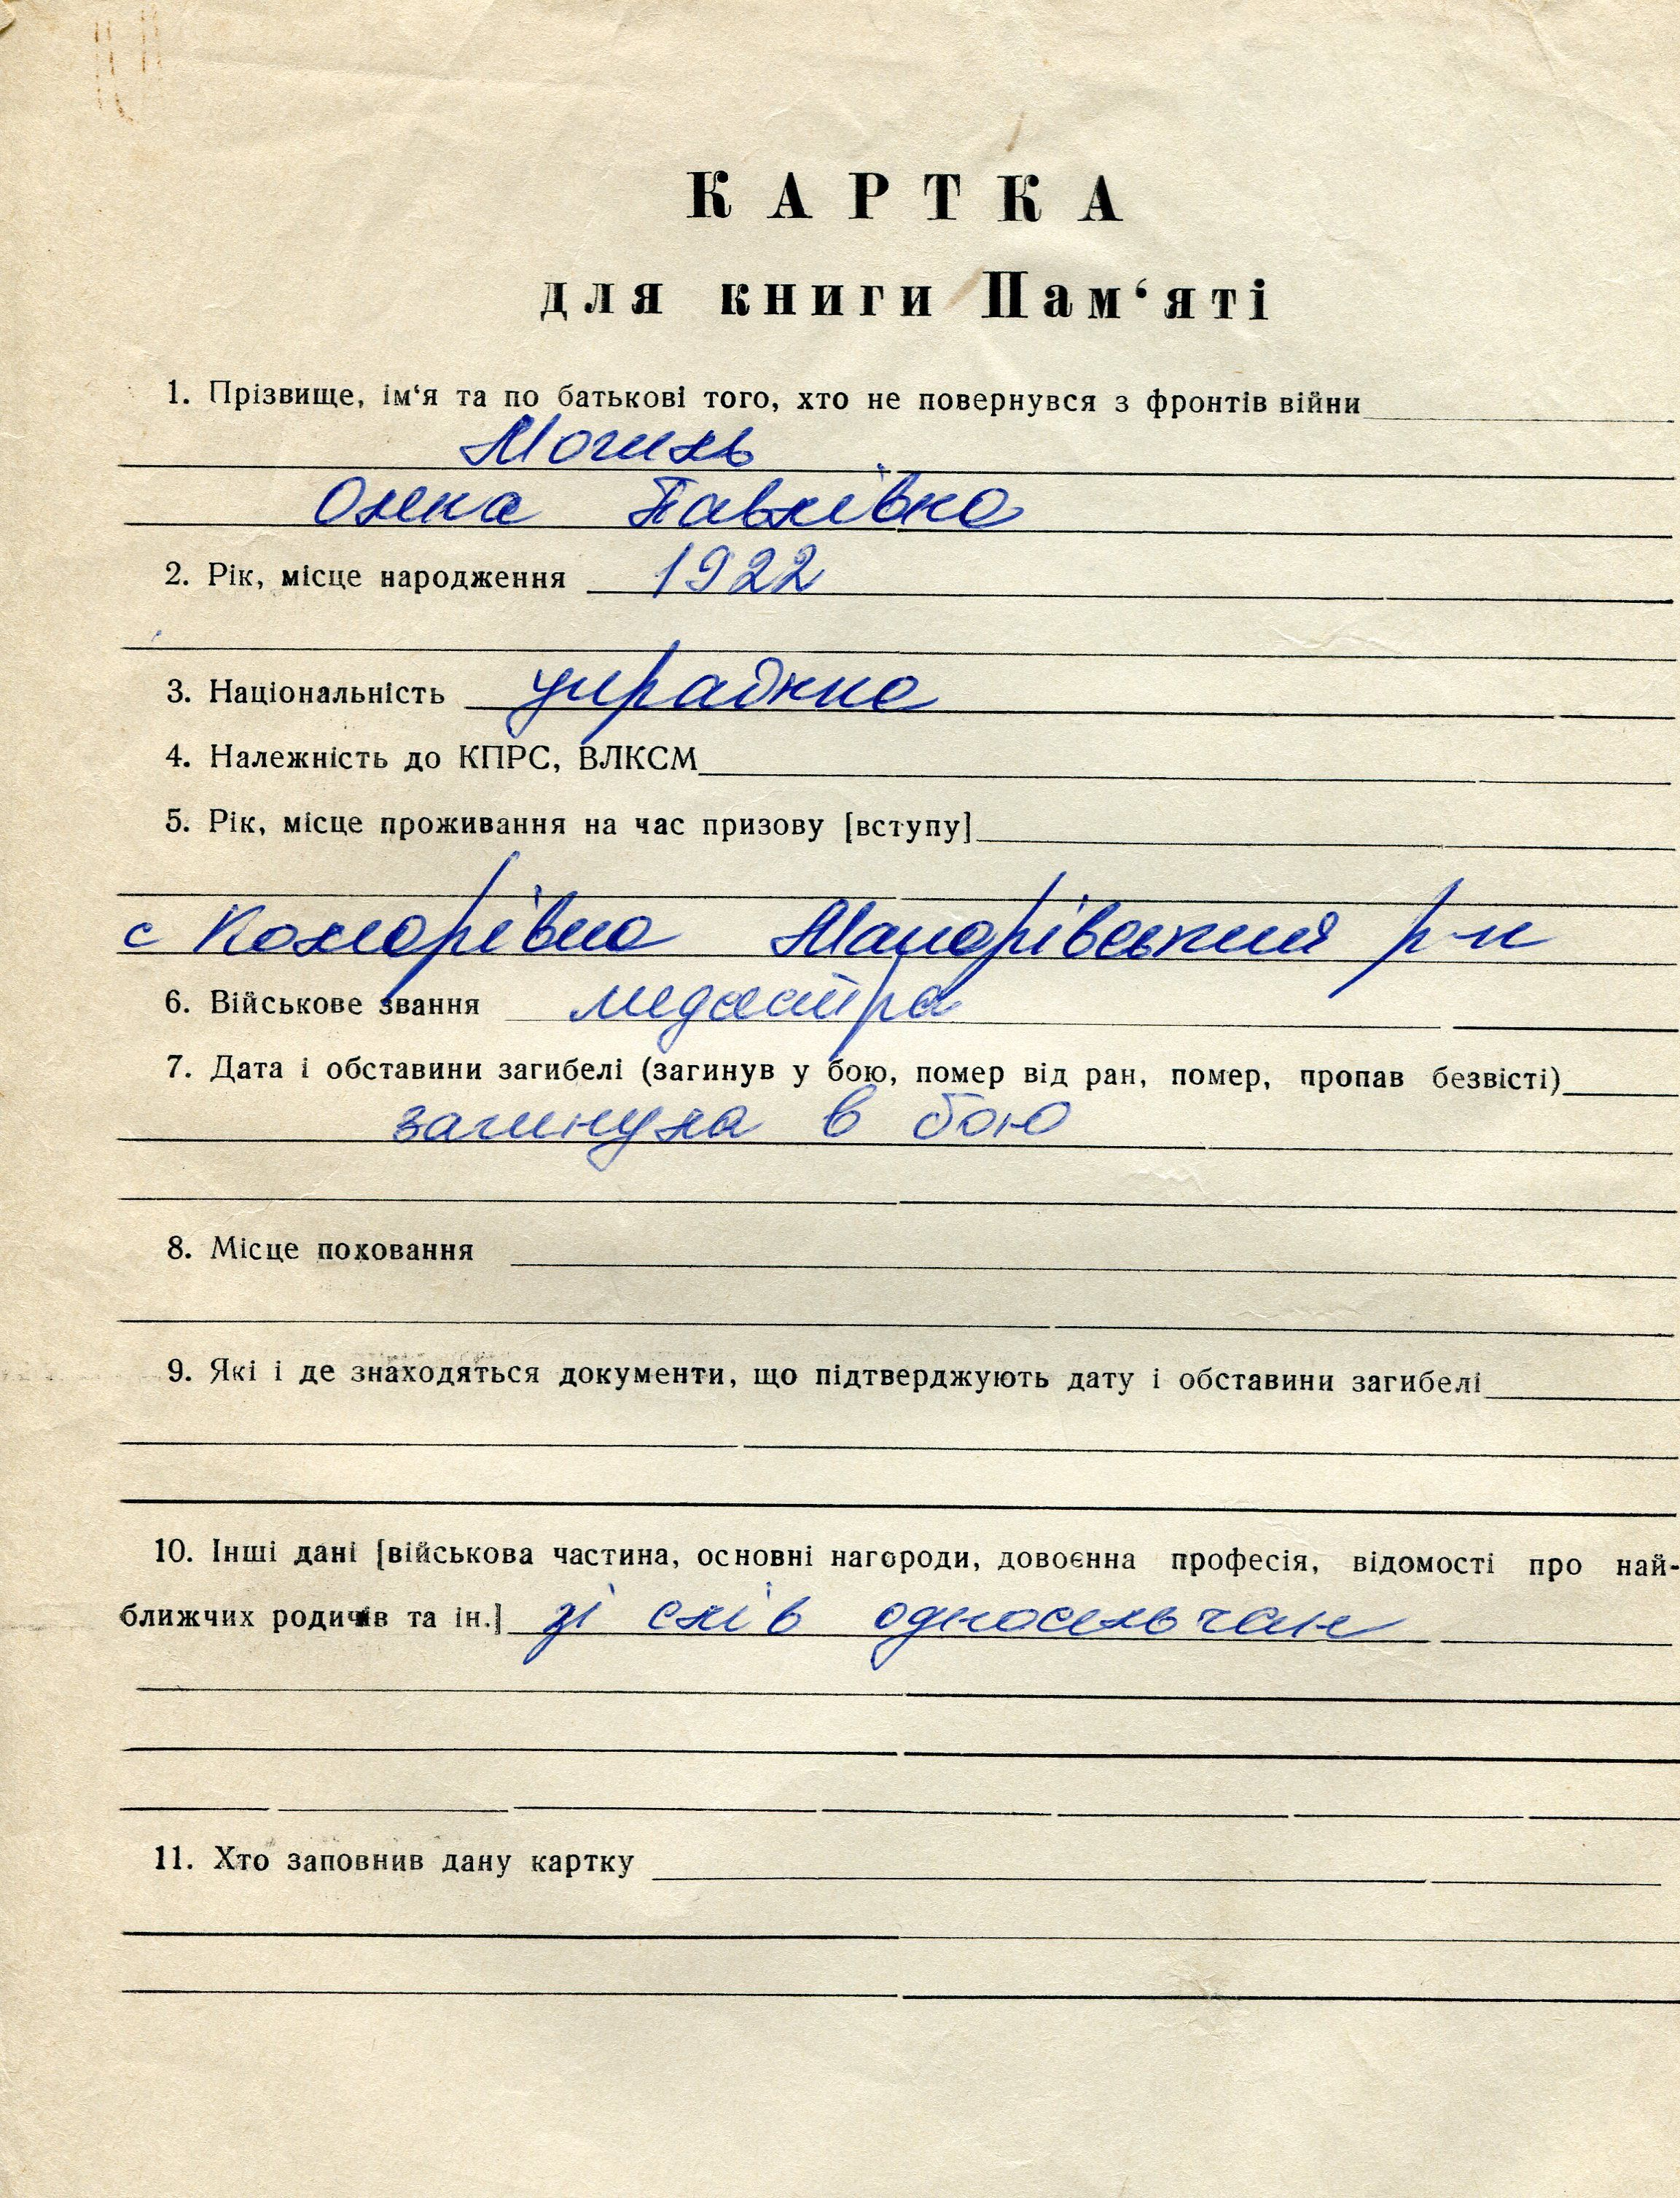 КАРТКА
для книги Пам‘яті
1. Прізвище, ім‘я та по батькові того, хто не повернувся з фронтів війни
Могиль
Олена Павлівна
2. Рік, місце народження 1922
3. Національність українка
4. Належність до КПРС, ВЛКСМ
5. Рік, місце проживання на час призову [вступу]
с Комарівка Макарівський р-н
6. Військове звання медсестра
7. Дата і обставини загибелі (загинув у бою, помер від ран, помер, пропав безвісті)
загинула в бою
8. Місце поховання
9. Які і де знаходяться документи, що підтверджують дату і обставини загибелі
10. Інші дані [військова частина, основні нагороди, довоєнна професія, відомості про най-
ближчих родичів та ін.] зі слів односельчан
11. Хто заповнив дану картку